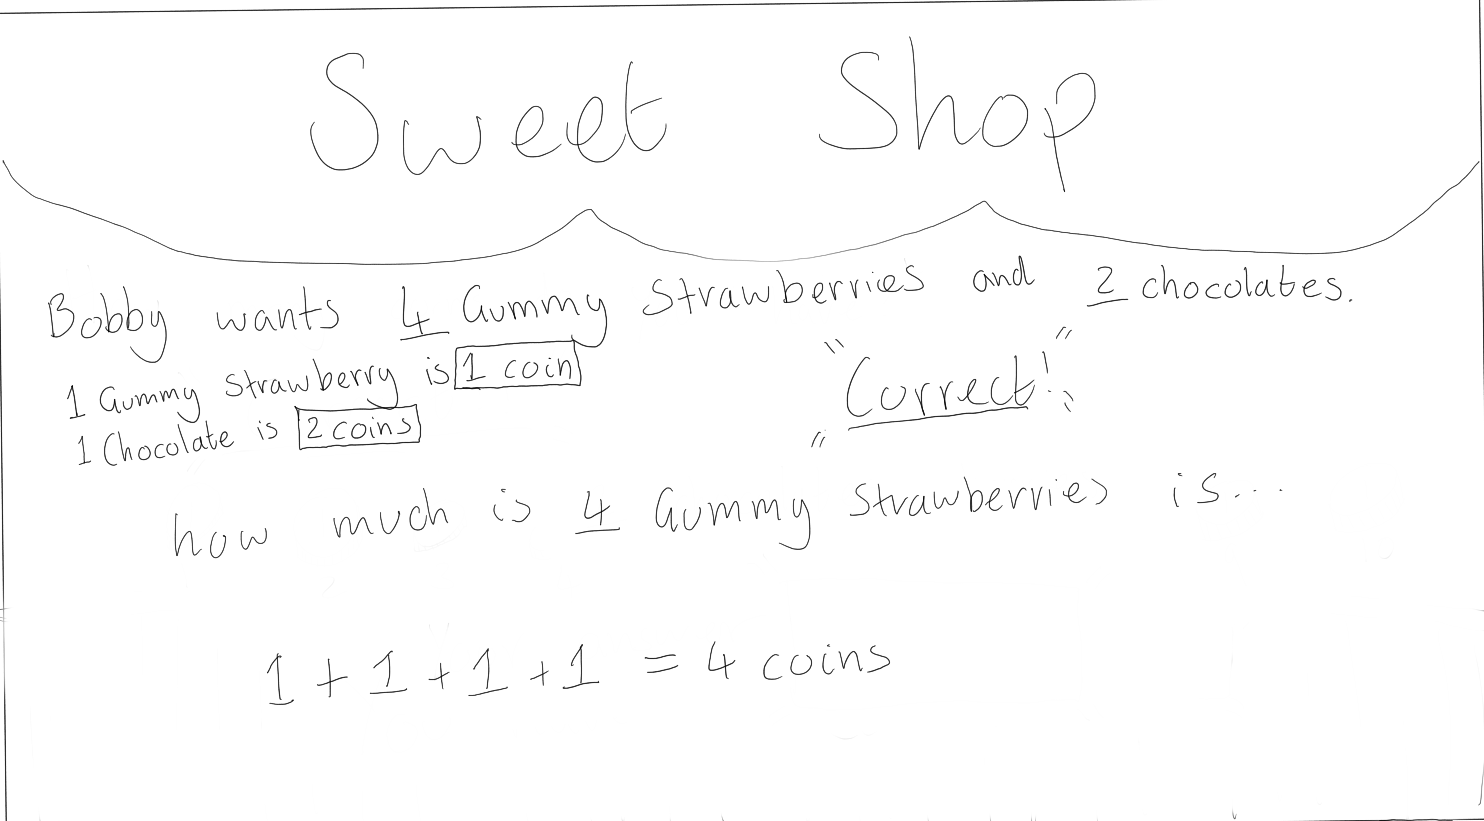 Sweet Shop
Bobby wants 4 Gummy Strawberries and 2 chocolates.
1 Gummy Strawberry is 1 coin
1 Chocolate is 2 coins
"Correct!"
how much is 4 Gummy Strawberries is...
1 + 1 + 1 + 1 = 4 coins